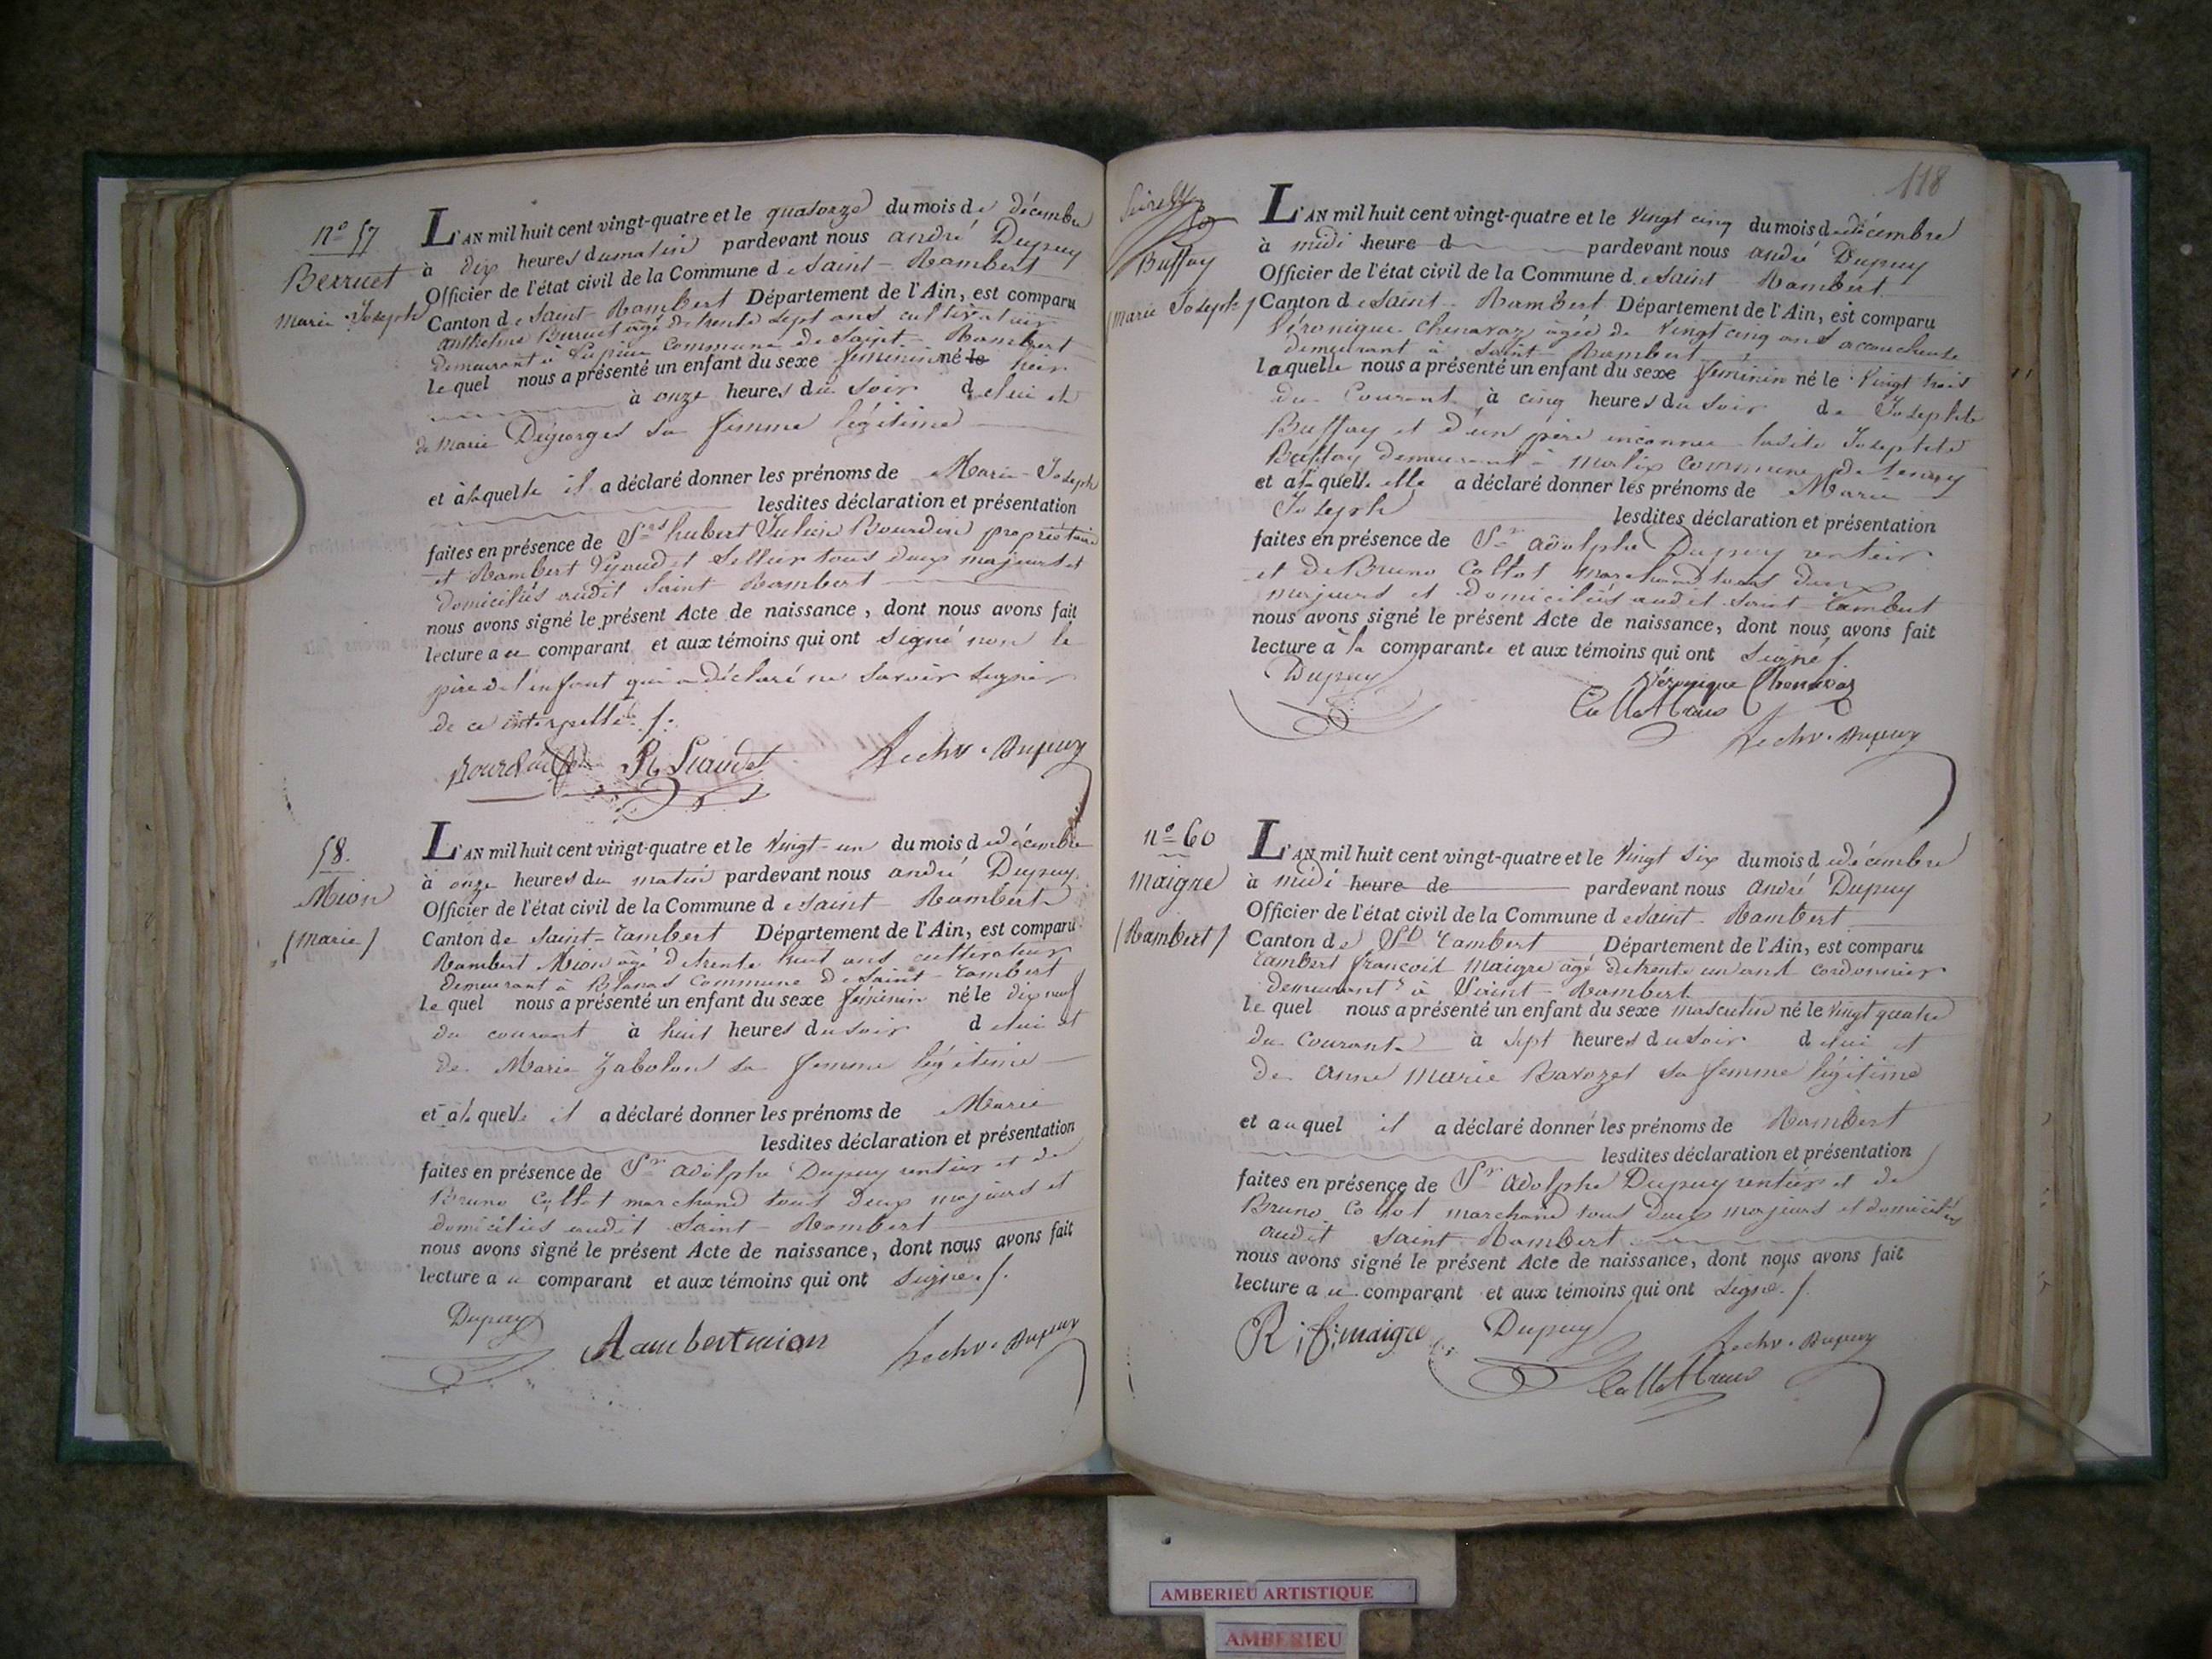 n° 57
Berruet
Marie Joseph
L'AN mil huit cent vingt-quatre et le quatorze du mois de décembre
à dix heures du matin pardevant nous andré Dupuy
Officier de l'état civil de la Commune de Saint-Rambert
Canton de Saint-Rambert Département de l'Ain, est comparu
anthelme Berruet agé de trente sept ans cultivateur
demeurant à commune de Saint-Rambert
lequel nous a présenté un enfant du sexe féminin né le hier
à onze heures du soir de lui et
de Marie Degeorges sa femme légitime
et à laquelle il a déclaré donner les prénoms de Marie-Joseph
lesdites déclaration et présentation
faites en présence de Srs hubert Julien Bourdin propriétaire
et Rambert sellier tous deux majeurs et
domiciliés audit Saint Rambert
nous avons signé le présent Acte de naissance, dont nous avons fait
lecture au comparant et aux témoins qui ont signé non le
père de l'enfant qui a déclaré ne savoir signer
de ce interpellé ./.
Bourdin
Dupuy
58.
Mion
(marie)
L'AN mil huit cent vingt-quatre et le vingt-un du mois de décembre
à onze heures du matin pardevant nous andré Dupuy
Officier de l'état civil de la Commune de Saint-Rambert
Canton de Saint-rambert Département de l'Ain, est comparu
Rambert Mion agé de trente huit ans cultivateur
demeurant à Blanas commune de Saint-rambert
lequel nous a présenté un enfant du sexe féminin né le dix neuf
du courant à huit heures du soir de lui et
de Marie Jabolon sa femme légitime
et à laquelle il a déclaré donner les prénoms de Marie
lesdites déclaration et présentation
faites en présence de Sr adolphe Dupuy rentier et de
Bruno Collot marchand tous deux majeurs et
domiciliés audit Saint-Rambert
nous avons signé le présent Acte de naissance, dont nous avons fait
lecture au comparant et aux témoins qui ont signé ./.
Dupuy
Rambert mion
Dupuy
118
Buffay
(marie Joseph)
L'AN mil huit cent vingt-quatre et le vingt cinq du mois de décembre
à midi heure d pardevant nous andré Dupuy
Officier de l'état civil de la Commune de Saint-Rambert
Canton de Saint-Rambert Département de l'Ain, est comparu
Véronique Chenavaz agée de vingt cinq ans accoucheuse
demeurant à Saint-Rambert
laquelle nous a présenté un enfant du sexe féminin né le vingt trois
du courant à cinq heures du soir de Josephte
Buffay et d'un père inconnu ladite Josephte
Buffay demeurant à Commune de tenay
et à laquelle elle a déclaré donner les prénoms de Marie
Joseph
lesdites déclaration et présentation
faites en présence de Sr adolphe Dupuy rentier
et de Bruno Collot marchand tous deux
majeurs et domiciliés audit Saint-rambert
nous avons signé le présent Acte de naissance, dont nous avons fait
lecture à la comparante et aux témoins qui ont signé ./.
Dupuy
Véronique Chenavaz
Dupuy
n° 60
maigre
(Rambert)
L'AN mil huit cent vingt-quatre et le vingt six du mois de décembre
à midi heure de pardevant nous andré Dupuy
Officier de l'état civil de la Commune de Saint-Rambert
Canton de St rambert Département de l'Ain, est comparu
rambert françois maigre agé de trente un ans cordonnier
demeurant à Saint-Rambert
lequel nous a présenté un enfant du sexe masculin né le vingt quatre
du courant à sept heures du soir de lui et
de anne Marie Bavozet sa femme légitime
et auquel il a déclaré donner les prénoms de Rambert
lesdites déclaration et présentation
faites en présence de Sr adolphe Dupuy rentier et de
Bruno Collot marchand tous deux majeurs et domiciliés
audit Saint-Rambert
nous avons signé le présent Acte de naissance, dont nous avons fait
lecture au comparant et aux témoins qui ont signé ./.
R. f. maigre
Dupuy
Dupuy
AMBERIEU ARTISTIQUE
AMBERIEU